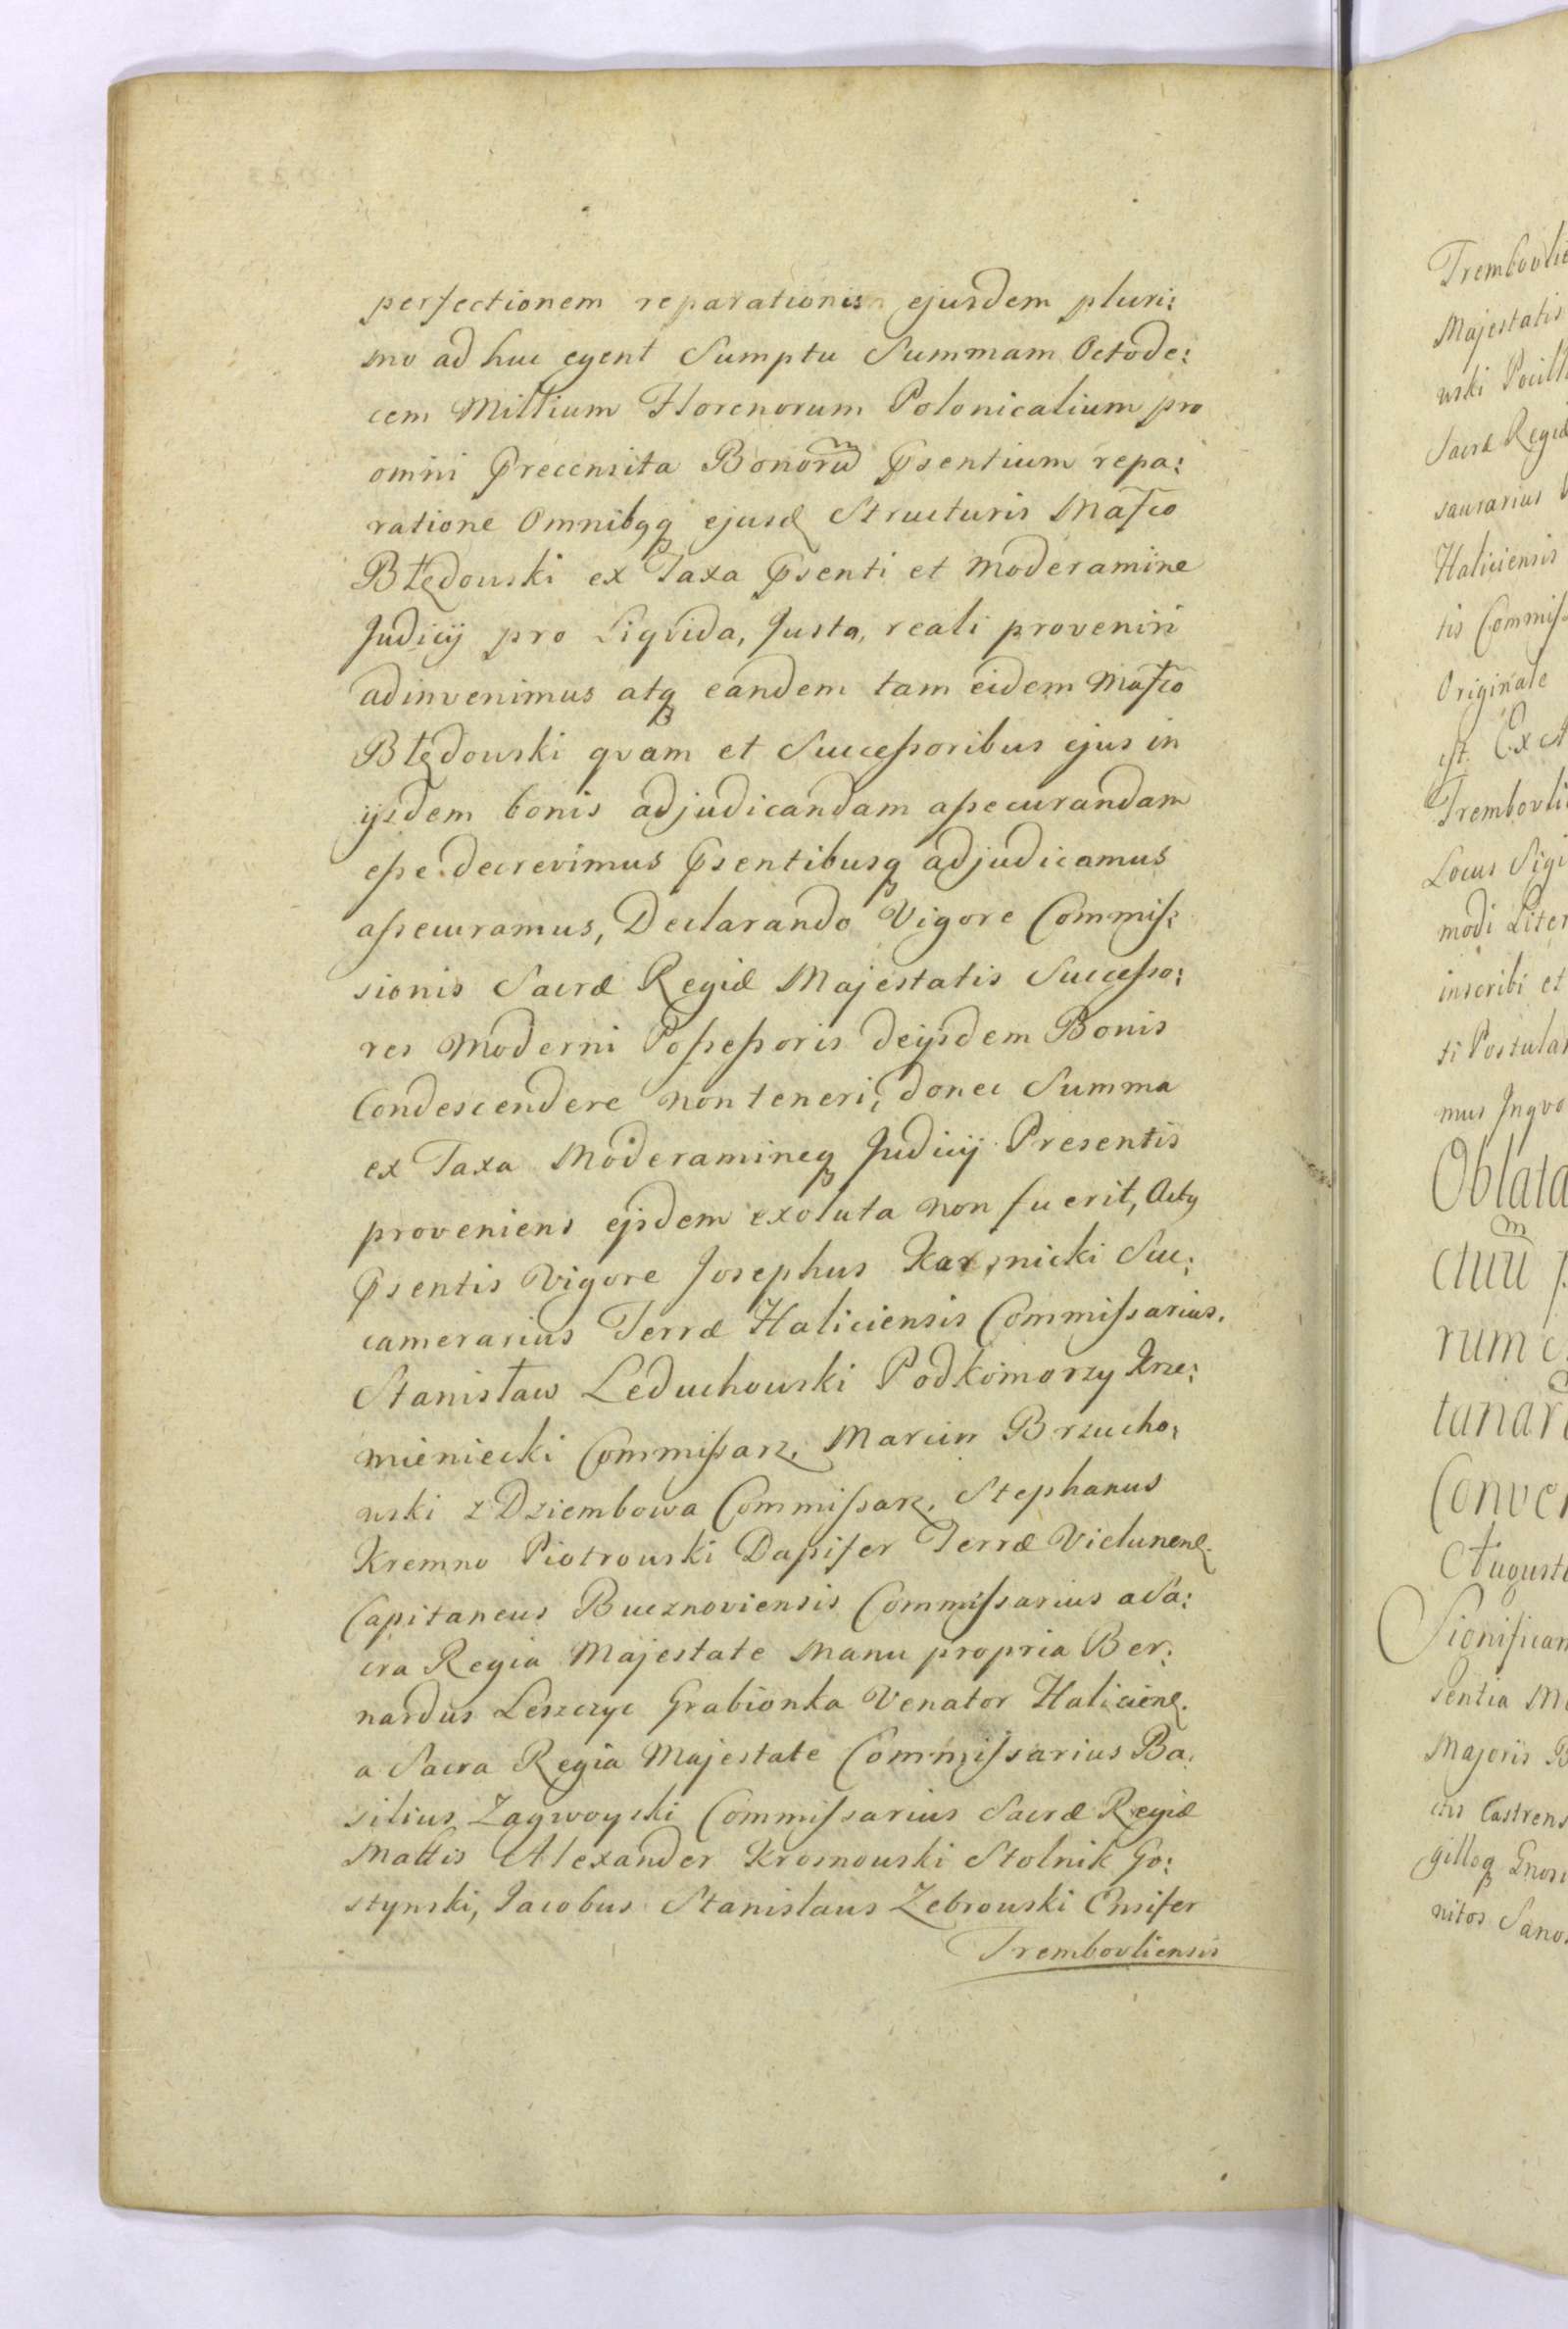 perfectionem reparationis ejusdem pluri:
mo ad huc egent Sumptu Summam Octode:
cem Millium Florenorum Polonicalium pro
omni Precensita Bonorum Psentium repa:
ratione Omnibqq ejusd Structuris Mafco
Błędowski ex Taxa Psenti et moderamine
Judicij pro Liqvida, Justa, reali proveniri
adinvenimus atq eandem tam eidem Mafco
Błędowski qvam et Successoribus ejus in
ijsdem bonis adjudicandam assecurandam
esse decrevimus Psentibusq adjudicamus
assecuramus, Declarando Vigore Commiss:
sionis Sacræ Regiæ Majestatis Successo:
res Moderni Possessoris deijsdem Bonis
Condescendere non teneri, donec Summa
ex Taxa Moderamineq Judicij Presentis
proveniens ejsdem exoluta non fuerit, Actq
Psentis Vigore Josephus Karsnicki Suc:
camerarius Terræ Haliciensis Commissarius.
Stanisław Leduchowski Podkomorzy Krze:
mieniecki Commissarz. Marcin Brzucho:
wski z Dziembowa Commissarz. Stephanus
Kremno Piotrowski Dapifer Terræ Vielunens.
Capitaneus Bucznoviensis Commissarius a Sa:
cra Regia Majestate Manu propria Ber:
nardus Leszczyc Grabionka Venator Haliciens.
a Sacra Regia Majestate Commissarius Ba:
silius Zagwoyski Commissarius Sacræ Regiæ
Mattis Alexander Krosnowski Stolnik Go:
stynski, Jacobus Stanislaus Zebrowski Ensifer
Trembovliensis
Majestatis
Haliciensis
Originale
Locus
inscribi et
Oblata
rum